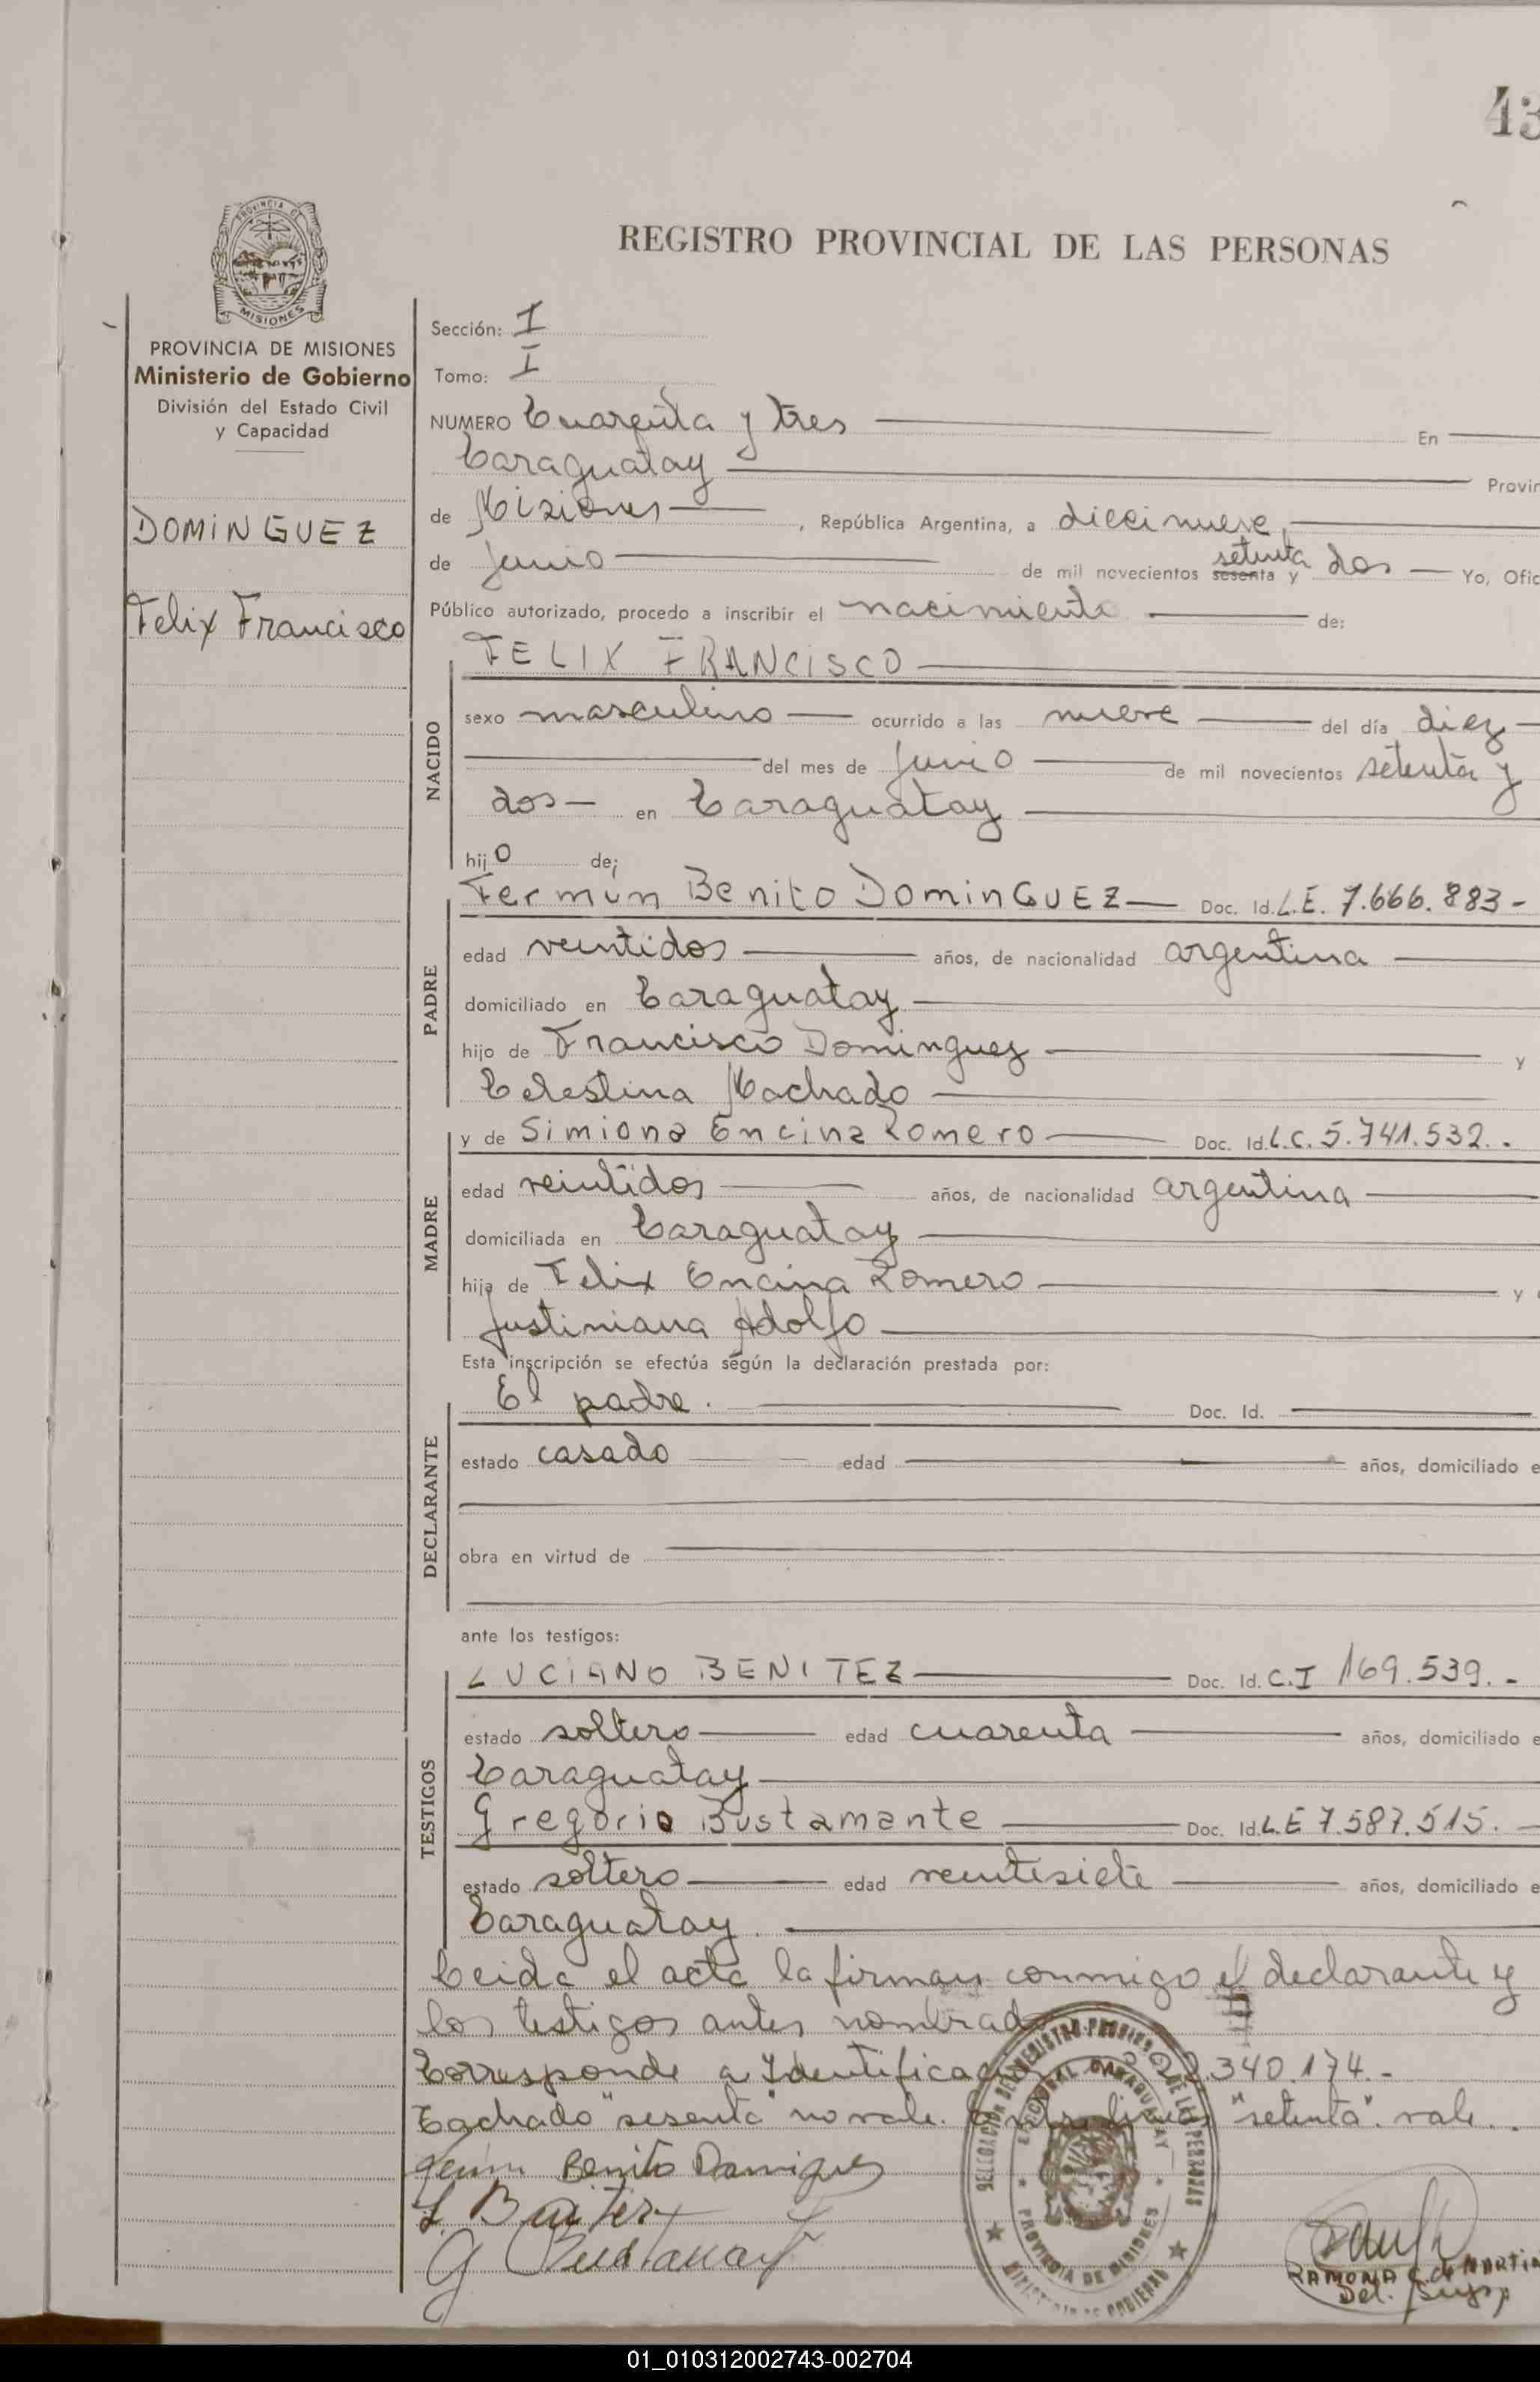 43
REGISTRO PROVINCIAL DE LAS PERSONAS
PROVINCIA DE
MISIONES
PROVINCIA DE MISIONES
Ministerio de Gobierno
División del Estado Civil
y Capacidad
DOMINGUEZ
Felix Francisco
Sección: I
Tomo: I
NUMERO Cuarenta y tres En
Caraguatay Provin
de Misiones, República Argentina, a diecinueve
de Junio de mil novecientos sesenta y setenta dos Yo, Ofic
Público autorizado, procedo a inscribir el nacimiento de:
NACIDO
FELIX FRANCISCO
sexo masculino ocurrido a las nueve del día diez
del mes de Junio de mil novecientos setenta y
dos en Caraguatay
hijo de;
PADRE
Fermin Benito DominGUEZ Doc. Id. L.E. 7.666.883-
edad veintidos años, de nacionalidad argentina
domiciliado en Caraguatay
hijo de Francisco Dominguez y
Celestina Machado
MADRE
y de Simiona Encina Romero Doc. Id. L.C. 5.741.532.-
edad veintidos años, de nacionalidad argentina
domiciliada en Caraguatay
hija de Felix Encina Romero y
Justiniana Adolfo
Esta inscripción se efectúa según la declaración prestada por:
DECLARANTE
El padre. Doc. Id.
estado casado edad años, domiciliado e
obra en virtud de
ante los testigos:
TESTIGOS
LUCIANO BENITEZ Doc. Id. C.I 169.539.-
estado soltero edad cuarenta años, domiciliado e
Caraguatay
Gregorio Bustamante Doc. Id. L.E 7.587.515.
estado soltero edad veintisiete años, domiciliado e
Caraguatay.
Leida el acta la firman conmigo el declarante y
los testigos antes nombrado
Corresponde a Identificación 340.174.-
Tachado "sesenta" no vale. Entre lineas "setenta". vale.
Benito Dominguez
RAMONA C. de MARTIN
Del.
DELEGACION DEL REGISTRO PROVINCIAL DE LAS PERSONAS
PROVINCIA DE MISIONES
MINISTERIO DE GOBIERNO
01_010312002743-002704